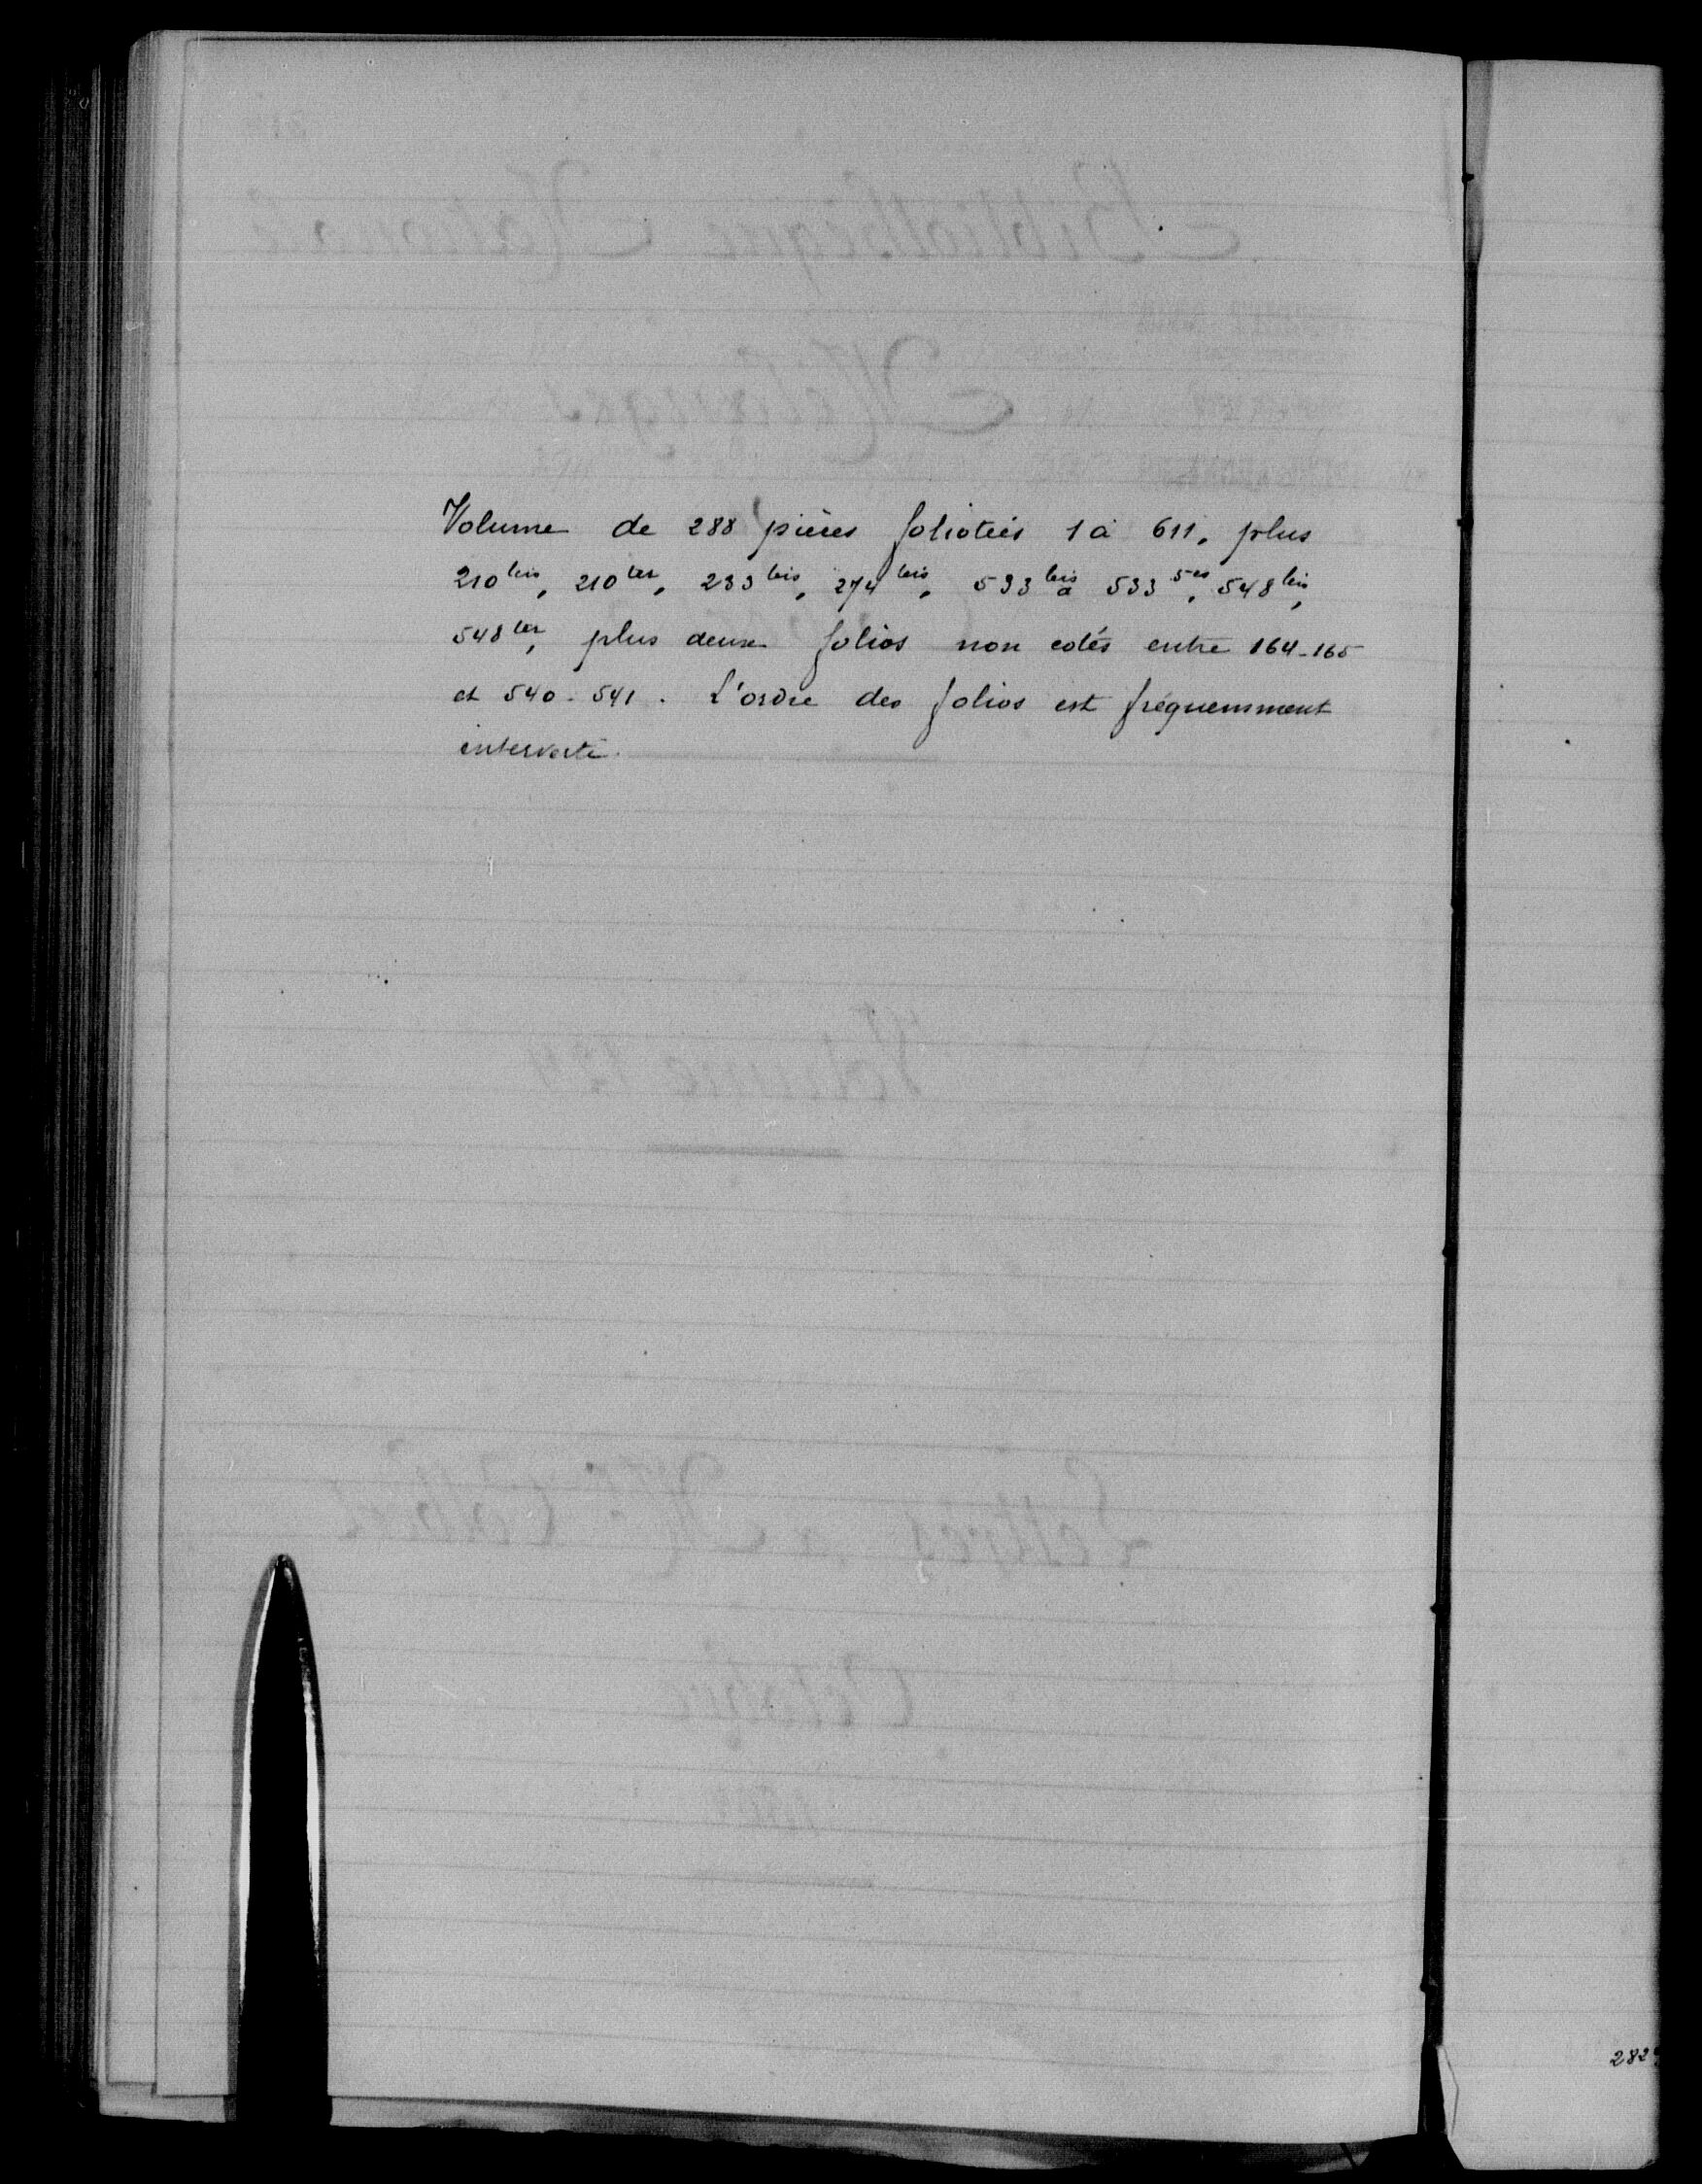 Volume de 288 pièces foliotées 1 à 611, plus
210 bis, 210 ter, 233 bis, 274 bis, 533 bis à 533 5es, 548 bis,
548 ter, plus deux folios non cotés entre 164-165
et 540-541. L'ordre des folios est fréquemment
interverti.
282